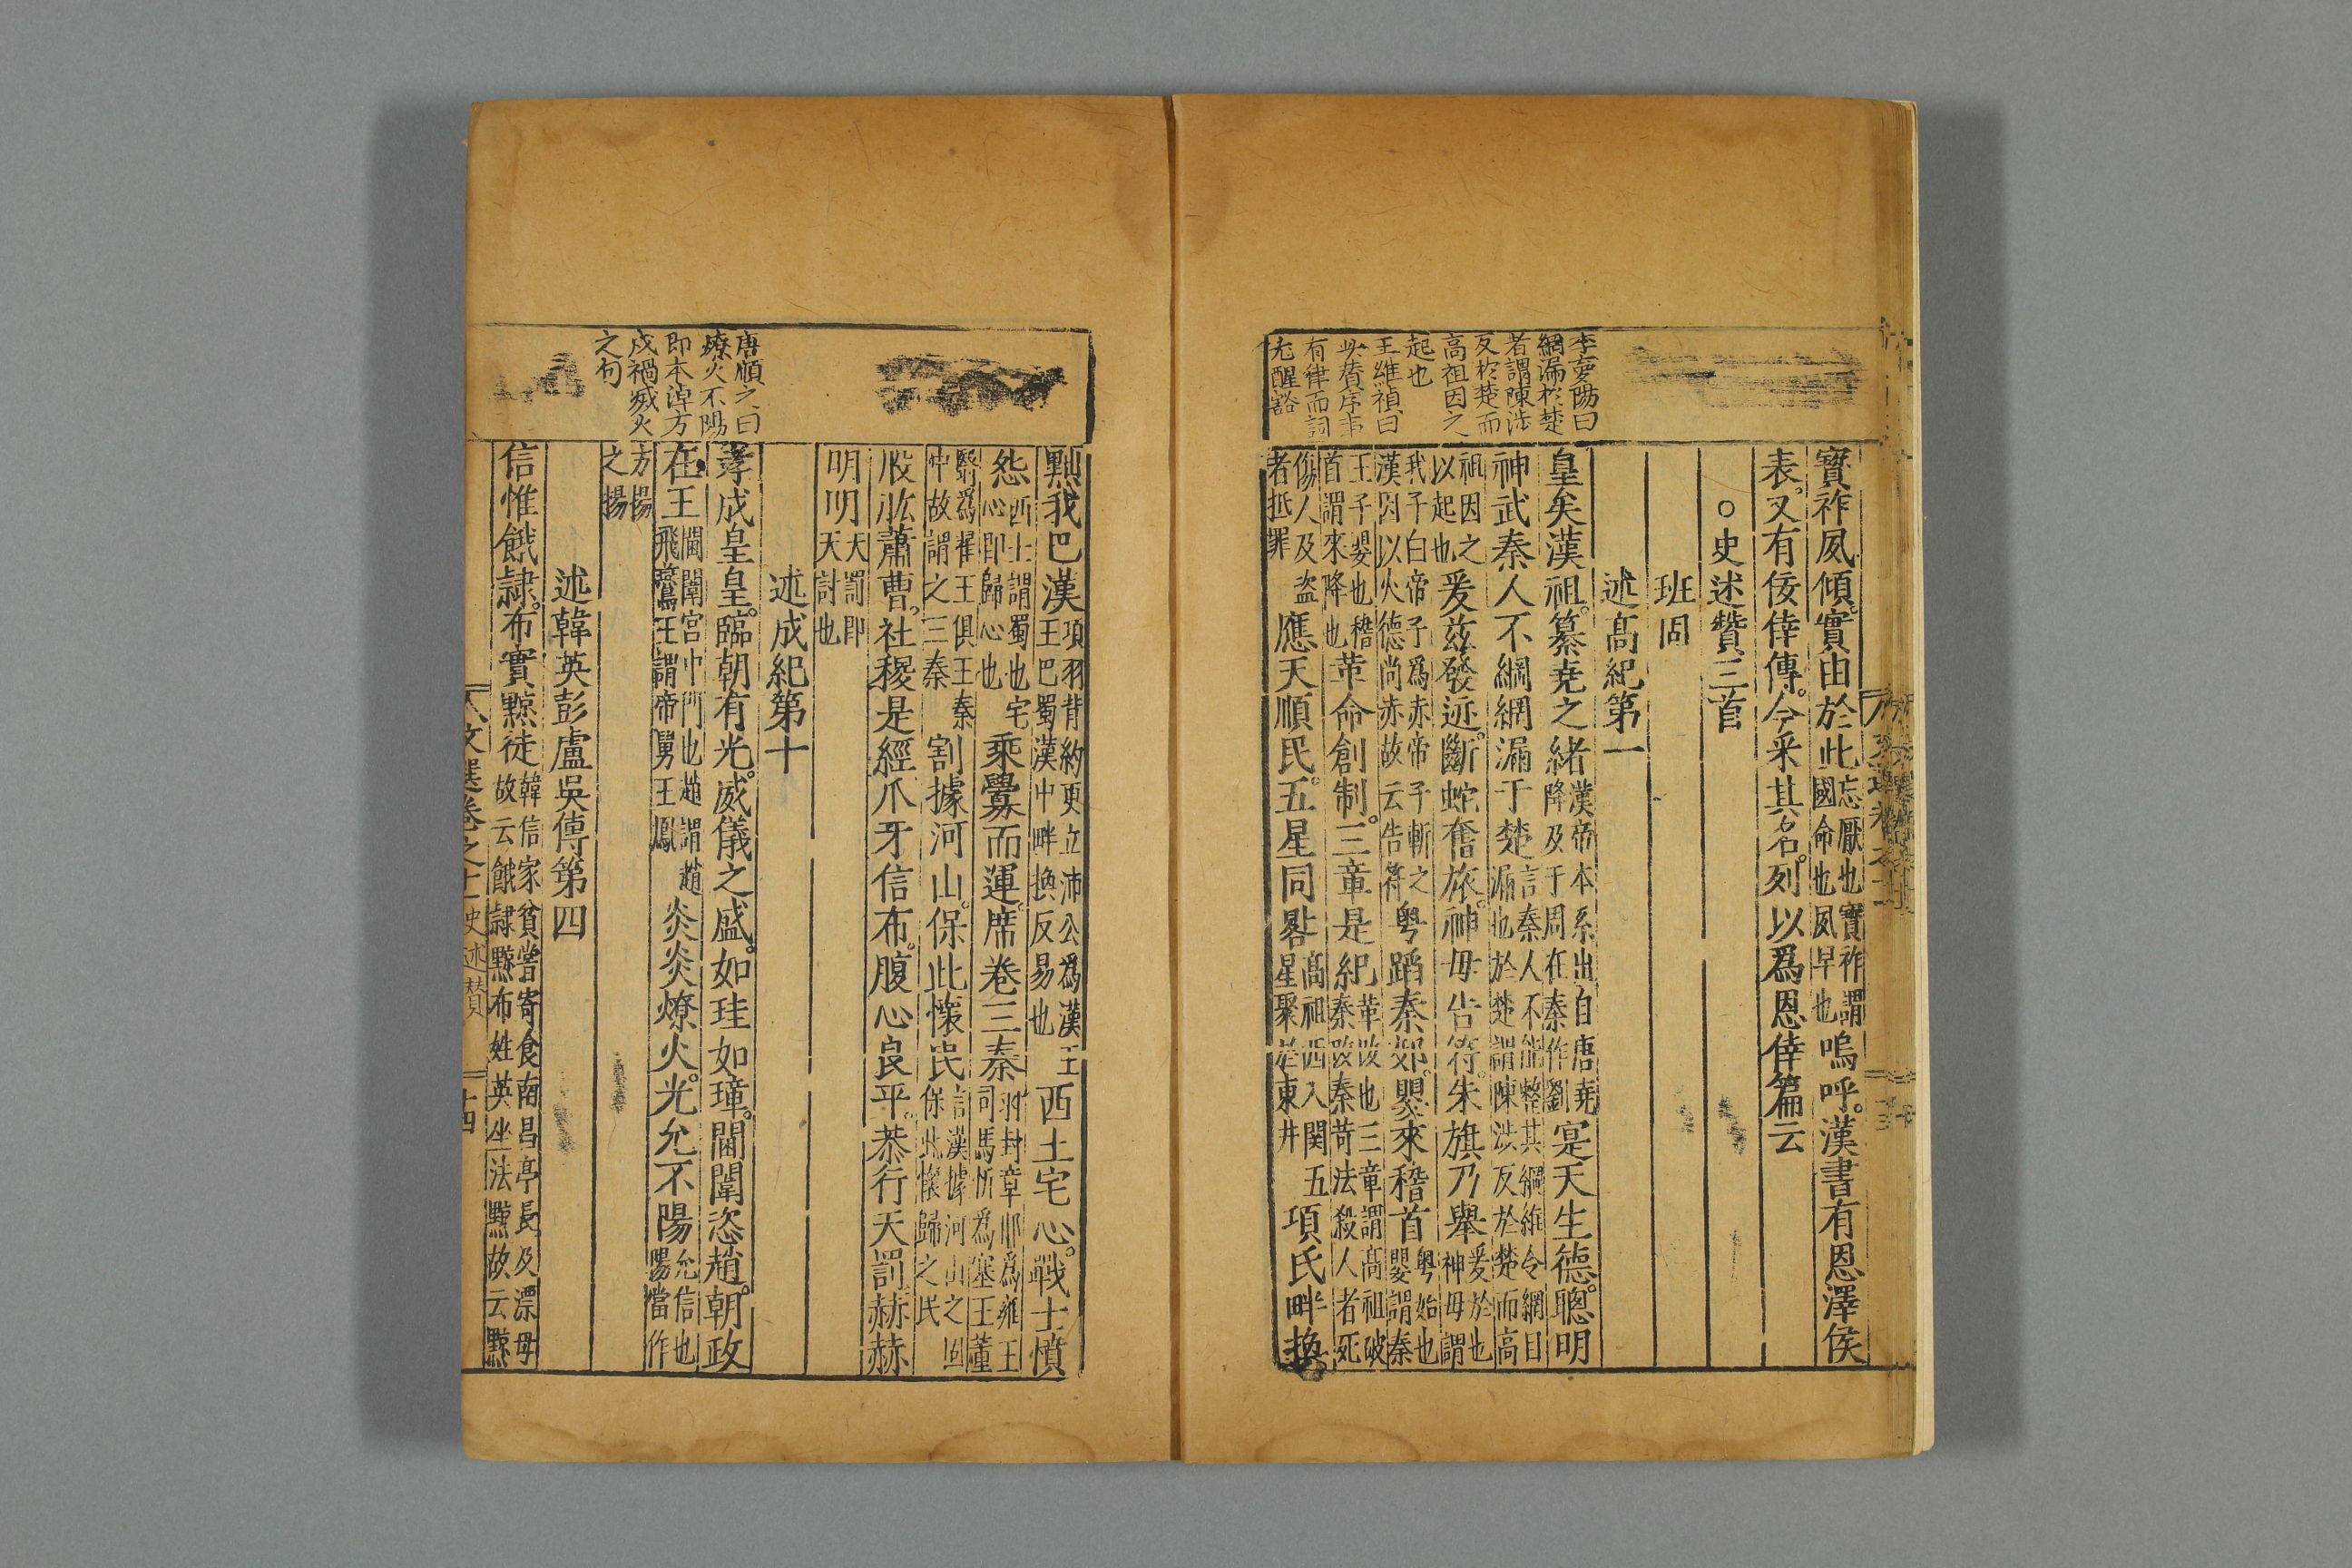 李夢陽曰
網漏於楚
者謂陳涉
反於楚而
高祖因之
起也
王維禎曰
此贊序事
有律而詞
尤醒豁
寳祚夙傾。實由於此忘厭也寳祚謂
國命也夙早也嗚呼。漢書有恩澤侯
表。又有佞倖傳。今采其名。列以爲恩倖篇云
○史述贊三首
班固
述髙紀第一
皇矣漢祖。纂堯之緒漢帝本系出自唐堯
降及于周在秦作劉寔天生德。聰明
神武秦人不綱網漏于楚言秦人不能整其綱維令網目
漏也於楚謂陳涉反於楚而高
祖因之
以起也爰兹發迹。斷蛇奮旅。神母告符。朱旗乃舉爰於也
神母謂
我子白帝子爲赤帝子斬之
漢因以火德尚赤故云告符粤蹈秦郊。嬰來稽首粤始也
嬰謂秦
王子嬰也稽
首謂來降也革命創制。三章是紀革改也三章謂髙祖破
秦改秦苛法殺人者死
傷人及盗
者抵罪應天順民。五星同晷髙祖西入関五
星聚於東井項氏畔換。
黜我巴漢項羽背約更立沛公爲漢王
王巴蜀漢中畔換反易也西土宅心。戰士憤
怨西土謂蜀也宅
心卽歸心也乘釁而運。席卷三秦羽封章邯爲雍王
司馬忻爲塞王董
翳爲翟王俱王秦
中故謂之三秦割據河山。保此懷民言漢據河山之固
保此懷歸之民
股肱蕭曹。社稷是經爪牙信布。腹心良平。恭行天罰赫赫
明明天罰即
天討也
述成紀第十
孝成皇皇。臨朝有光。威儀之盛。如珪如璋。閫闈恣趙。朝政
在王閫闈宫中門也趙謂趙
飛鷰王謂帝舅王鳳炎炎燎火。光允不陽允信也
陽當作
方揚
之揚
述韓英彭盧吳傳第四
信惟餓隷。布實黥徒韓信家貧嘗寄食南昌亭長及漂母
故云餓隷黥布姓英坐法黥故云黥
唐順之曰
燎火不陽
即本淖方
成禍烕火
之句
文選卷之十 史述贊 十四